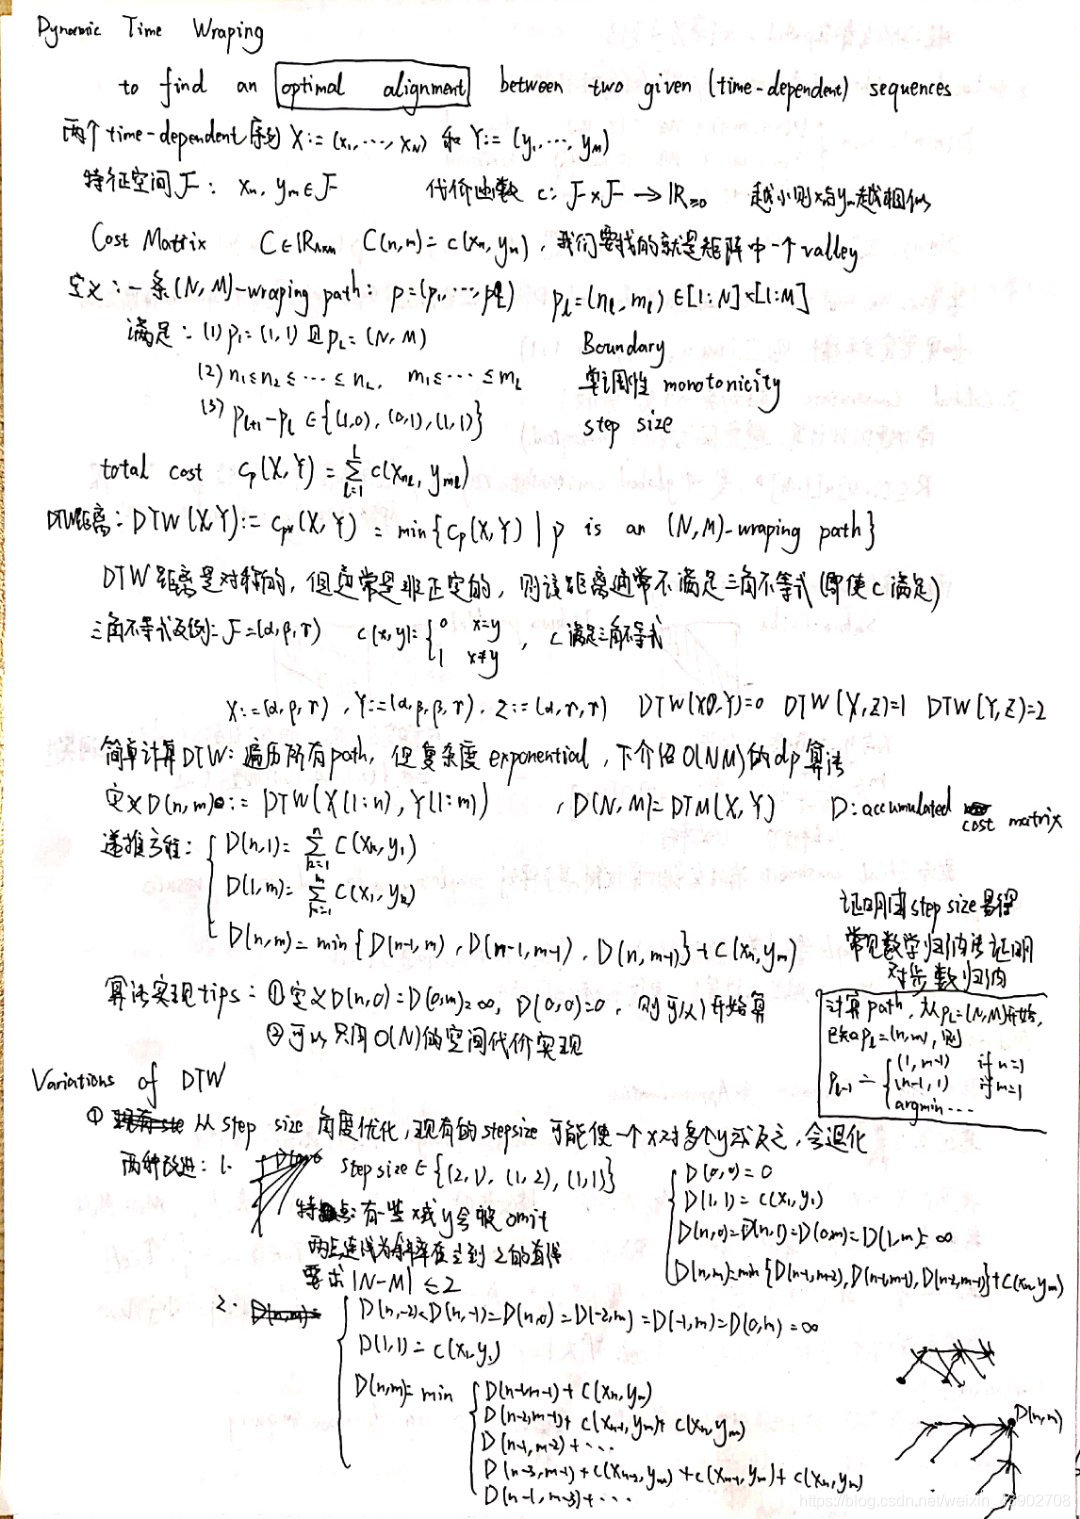 Dynamic Time Wraping
to find an optimal alignment between two given (time-dependent) sequences
两个time-dependent序列 X:=(x₁,…,x_N) 和 Y:=(y₁,…,y_M)
特征空间F: xₙ, yₘ∈F 代价函数 c: F×F→ℝ≥0 越小则x与yₘ越相似
Cost Matrix C∈ℝ C(n,m)=c(xₙ,yₘ), 我们要找的就是矩阵中一个valley
定义:一条(N,M)-wraping path: p=(p₁,…,p_L) p_l=(n_l,m_l)∈[1:N]×[1:M]
满足:(1) p₁=(1,1)且p_L=(N,M) Boundary
(2) n₁≤n₂≤…≤n_L, m₁≤…≤m_L 单调性 monotonicity
(3) p_{l+1}-p_l∈{(1,0),(0,1),(1,1)} step size
total cost c_p(X,Y)=∑_{l=1}^{L} c(x_{n_l},y_{m_l})
DTW距离: DTW(X,Y):=c_{p*}(X,Y)=min{c_p(X,Y)|p is an (N,M)-wraping path}
DTW距离是对称的,但通常是非正定的,则该距离通常不满足三角不等式(即使c满足)
三角不等式反例:F={α,β,γ} c(x,y)={0 x=y
1 x≠y , c满足三角不等式
X:=(α,β,γ), Y:=(α,β,β,γ), Z:=(α,γ,γ) DTW(X,Y)=0 DTW(X,Z)=1 DTW(Y,Z)=2
简单计算DTW:遍历所有path,但复杂度exponential,下介绍O(NM)的dp算法
定义D(n,m):=DTW(X(1:n),Y(1:m)) , D(N,M)=DTM(X,Y) D: accumulated cost matrix
递推方程: D(n,1)=∑_{k=1}^{n} C(xₖ,y₁)
D(1,m)=∑_{k=1}^{m} C(x₁,yₖ)
D(n,m)=min{D(n-1,m), D(n-1,m-1), D(n,m-1)}+C(xₙ,yₘ)
证明由step size易得
常见数学归纳法证明
对步数归纳
算法实现tips:①定义D(n,0)=D(0,m)=∞, D(0,0)=0, 则可从1开始算
②可以只用O(N)的空间代价实现
计算path,从p_L=(N,M)开始,
已知p_l=(n,m),则
p_{l-1}= (1,m-1) if n=1
(n-1,1) if m=1
argmin…
Variations of DTW
① 从step size 角度优化,现有的stepsize 可能使一个x对多个y或反之,会退化
两种改进:1. step size∈{(2,1),(1,2),(1,1)}
特点:有一些x或y会被omit
两点连线为斜率在½到2的直线
要求|N-M|≤2
D(0,0)=0
D(1,1)=C(x₁,y₁)
D(n,0)=D(n,1)=D(0,m)=D(1,m)=∞
D(n,m)=min{D(n-1,m-2),D(n-1,m-1),D(n-2,m-1)}+C(xₙ,yₘ)
2. D(n,-2)=D(n,-1)=D(n,0)=D(-2,m)=D(-1,m)=D(0,m)=∞
D(1,1)=c(x₁,y₁)
D(n,m)=min D(n-1,m-1)+C(xₙ,yₘ)
D(n-2,m-1)+C(xₙ₋₁,yₘ)+C(xₙ,yₘ)
D(n-1,m-2)+…
D(n-3,m-1)+C(xₙ₋₂,yₘ)+C(xₙ₋₁,yₘ)+C(xₙ,yₘ)
D(n-1,m-3)+…
D(n,m)